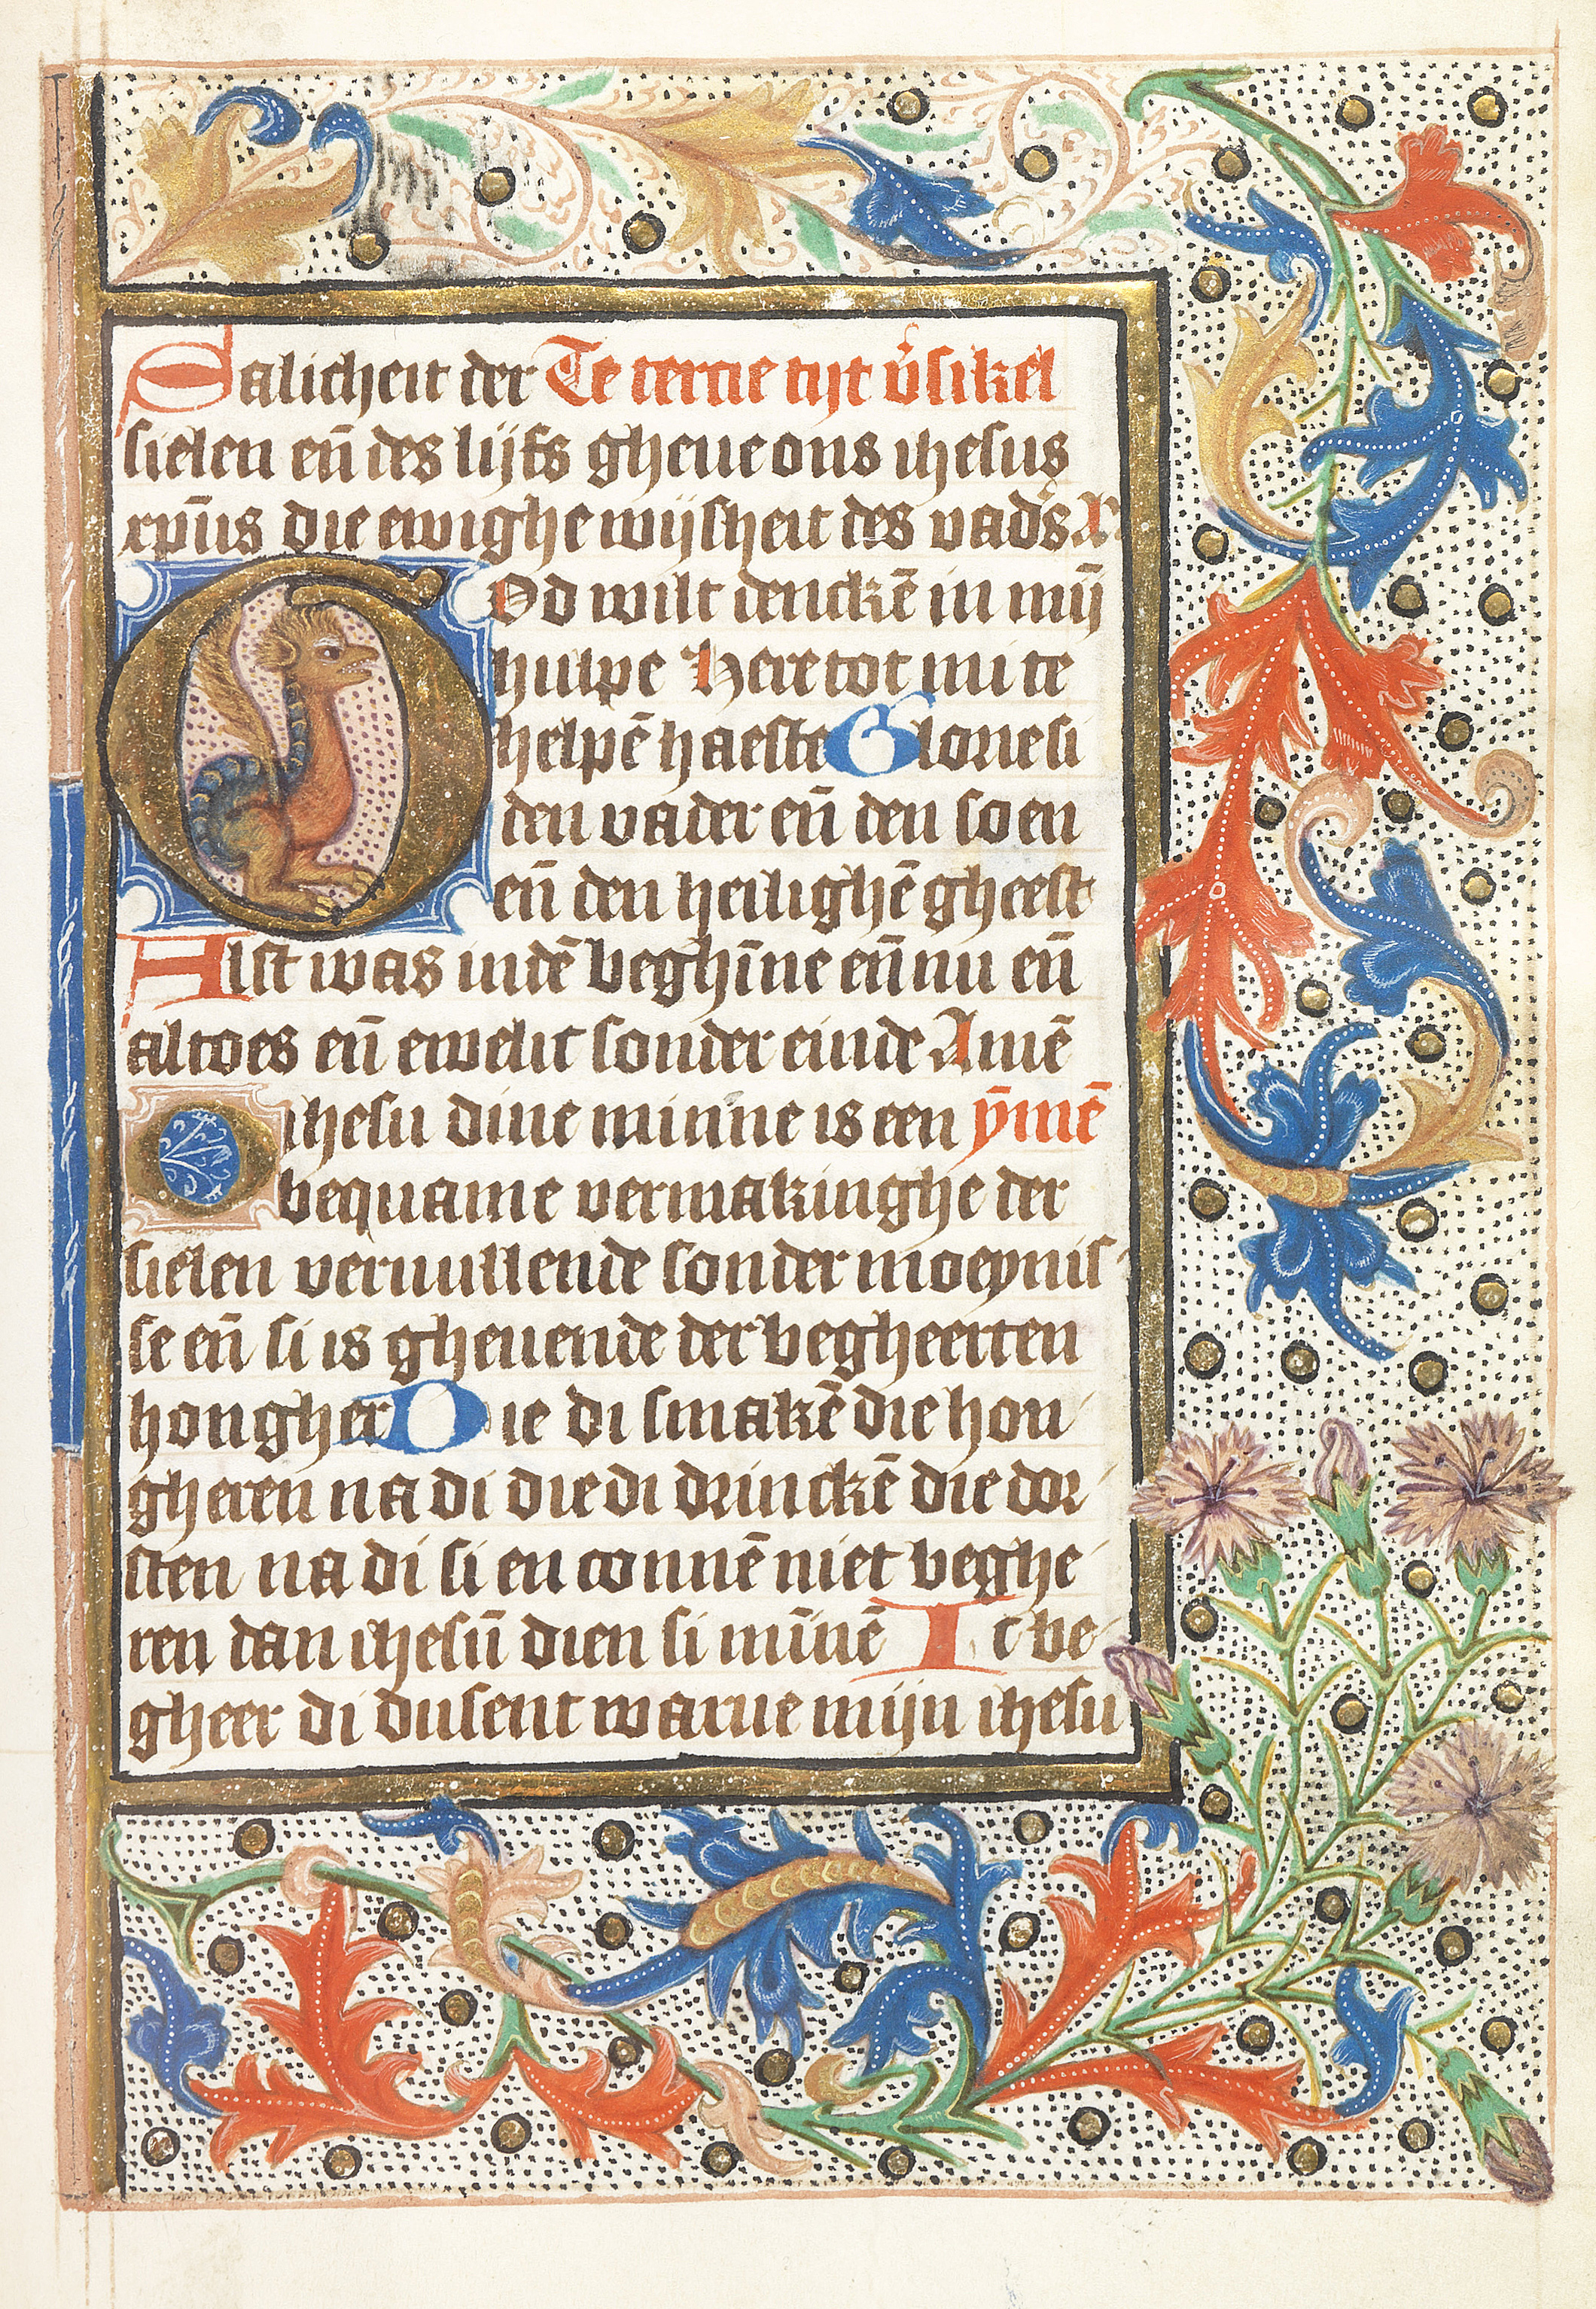 Salicheit der Te tercie tijt v̉sikel
sielen en̄ des lijfs gheue ons ihesus
xpūs die ewighe wijsheit des vad̉s
God wilt dencke̅ in mij̅
hulpe Here tot mi te
helpe̅ haeste Glorie si
den vader en̄ den soen
en̄ den heilighe̅ gheest
Alst was inde̅ beghi̅ne en̄ nu en̄
altoes en̄ ewelic sonder einde Ame̅
O ihesu dine minne is een ȳme̅
bequame vermakinghe der
sielen veruullende sonder moeynis
se en̄ si is gheuende der begheerten
hongher Die di smake̅ die hon
gheren na di die di drincke̅ die dor
sten na di si en conne̅ niet beghe
ren dan ihesu̅ dien si mi̅ne̅ Ic be
gheer di dusent warue mijn ihesu